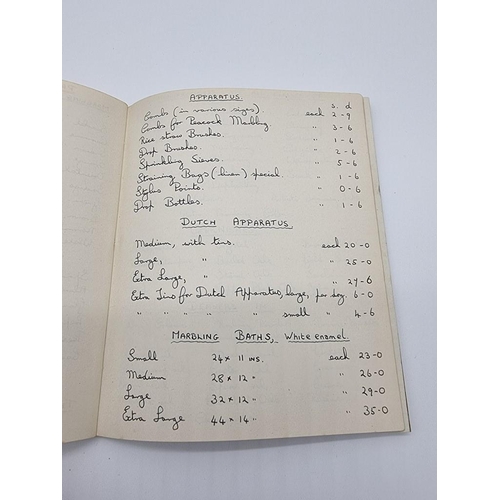 APPARATUS.
s. d
Combs (in various sizes). each 2-9
Combs for Peacock Marbling " 3-6
Rice straw Brushes. " 1-6
Drop Brushes. " 2-6
Sprinkling Sieves. " 5-6
Straining Bags (linen) special. " 1-6
Stylus Points. " 0-6
Drop Bottles. " 1-6
DUTCH APPARATUS.
Medium, with tins. each 20-0
Large, " " 25-0
Extra Large, " " 27-6
Extra Tins for Dutch Apparatus, large, per doz. 6-0
" " " " " small " 4-6
MARBLING BATHS, White enamel
Small 24 x 11 INS. each 23-0
Medium 28 x 12 " " 26-0
Large 32 x 12 " " 29-0
Extra Large 44 x 14 " " 35-0